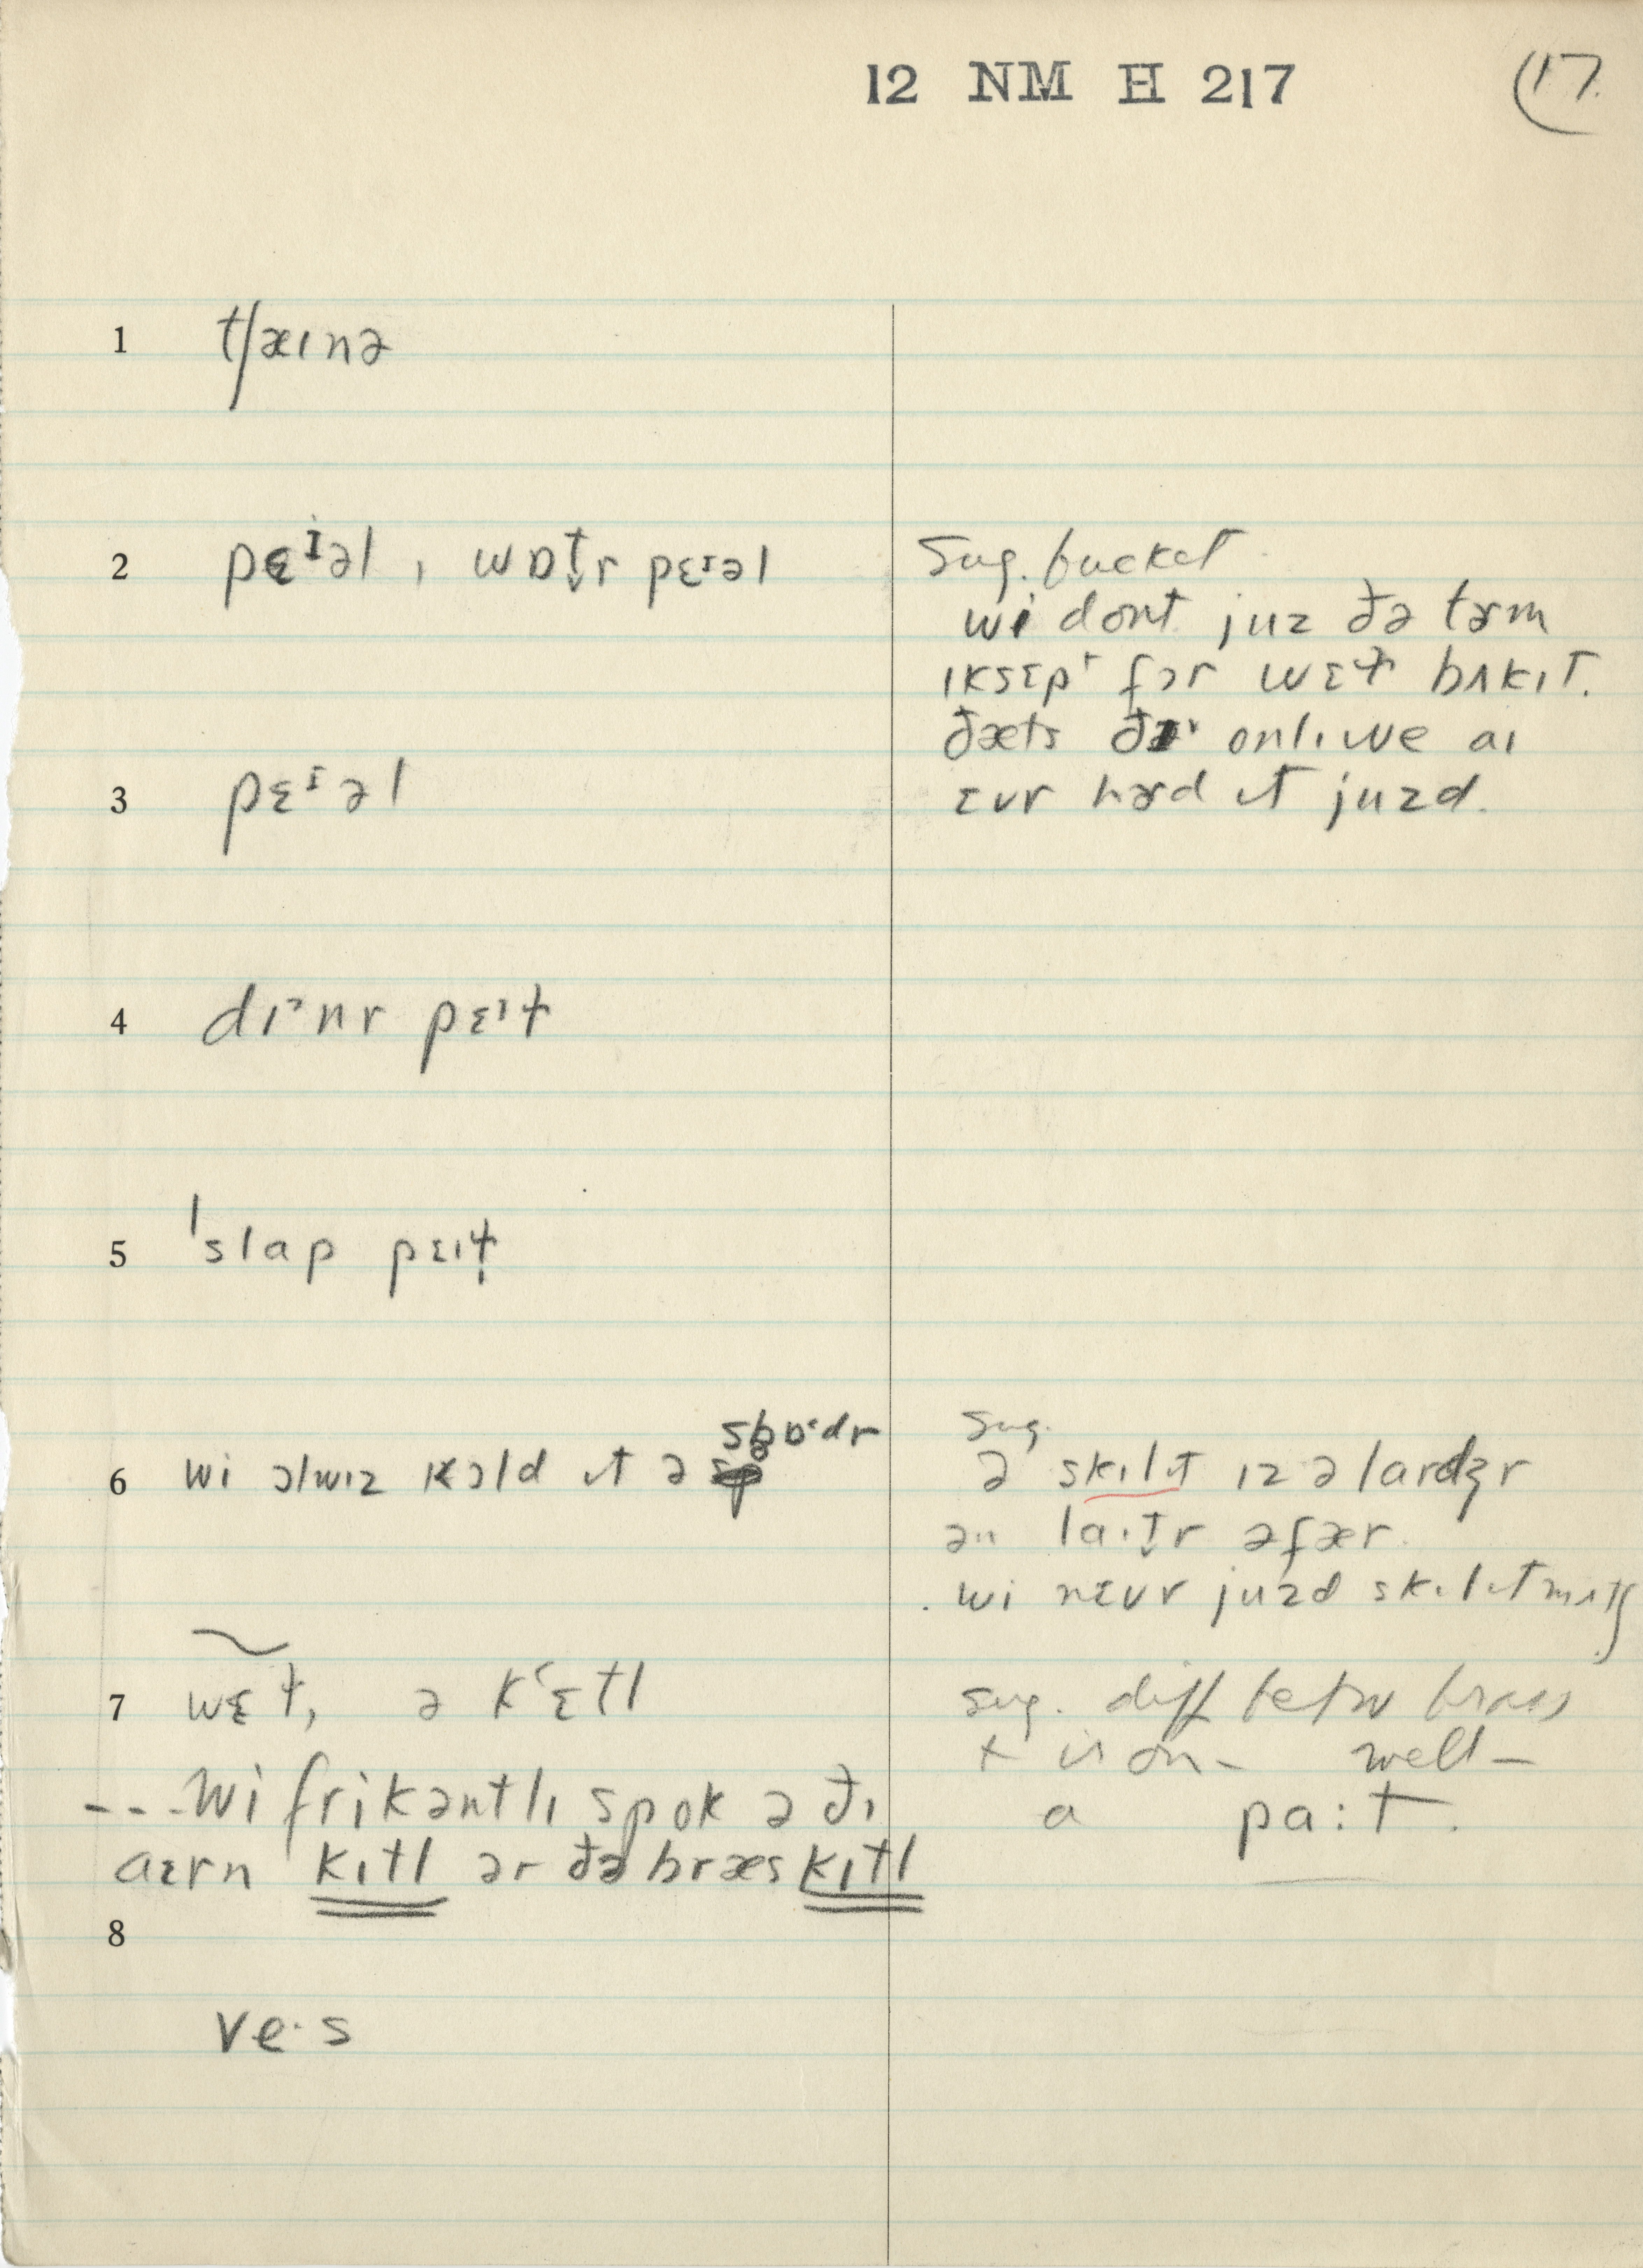 12 NM H 217 (17.
1 tʃæɪnə
2 pɛᴵəl , wɒt̬r pɛᴵəl
Sug. bucket
wi dont juz ðə tɚm
ɪksɛpt fɔr wɛt bʌkɪt.
ðæts ðɪ onlɪ we aɪ
ɛvr hɚd ɪt juzd.
3 pɛᴵəl
4 dɪᵊnr pɛɪt
5 ˈslap pɛɪt
6 wi ɔlwɪz kɔld ɪt ə spɒˑdr
Sug.
ə skɪlɪt ɪz ə lardʒr
ən laɪt̬r əfær.
wi nɛvr juzd skɪlɪt mʌtʃ
7 wɛt, ə kʻɛtl
sug. diff betw brass
+ iron – well –
---wi frikəntlɪ spok ə ðɪ
a pa:t.
aɪrn kɪtl ər ðə bræs kɪtl
8
ve·s